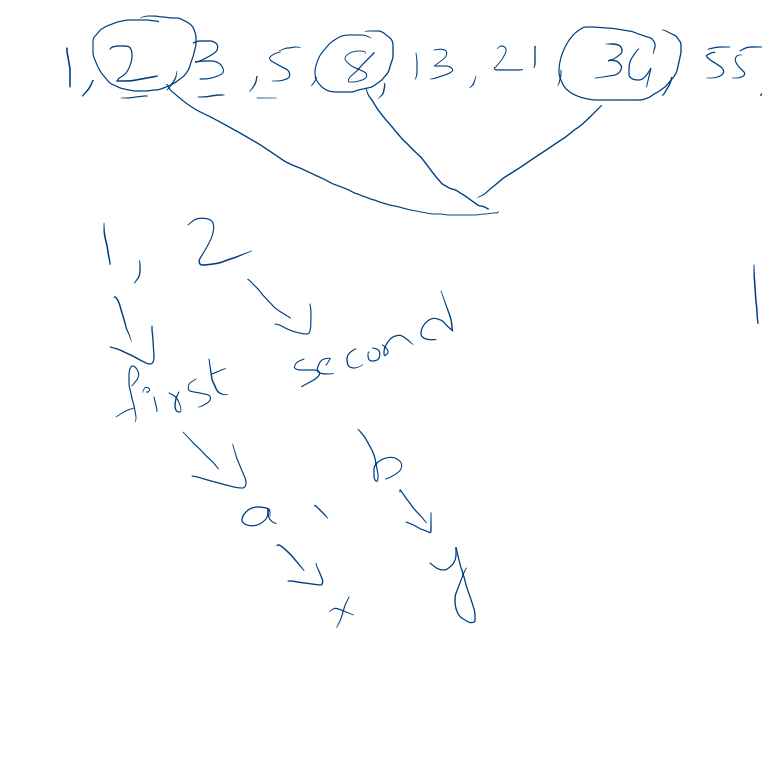 1, 2, 3, 5, 8, 13, 21, 34, 55,
1, 2
first second
a, b
x y